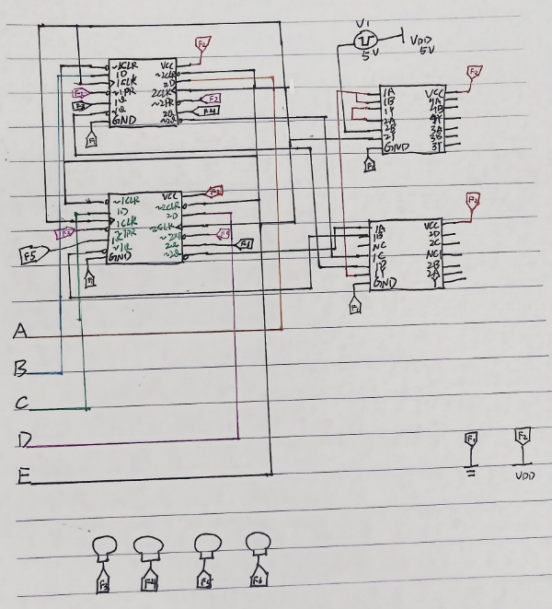 V1
5V
VDD
5V
~1CLR
1D
1CLK
~1PR
1Q
~1Q
GND
VCC
~2CLR
2D
2CLK
~2PR
2Q
~2Q
F2
F2
F4
1A
1B
1Y
2A
2B
2Y
GND
VCC
4A
4B
4Y
3A
3B
3Y
F2
~1CLR
1D
1CLK
~1PR
1Q
~1Q
GND
VCC
~2CLR
2D
2CLK
~2PR
2Q
~2Q
F5
1A
1B
NC
1C
1D
1Y
GND
VCC
2D
2C
NC
2B
2A
F2
A
B
C
D
E
F1
F2
VDD
F3
F4
F5
F6